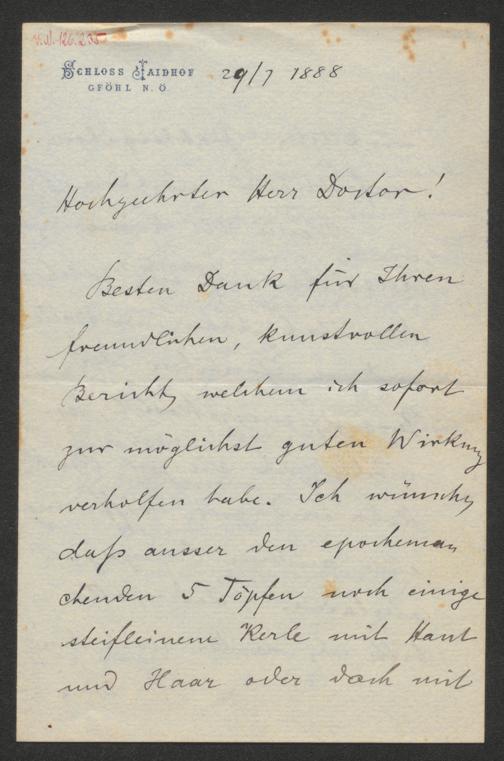 V.N. 126.235
SCHLOSS JAIDHOF
GFÖHL N. Ö.
29/7 1888
Hochgeehrter Herr Doctor!
Besten Dank für Ihren
freundlichen, kunstvollen
Bericht, welchem ich sofort
zur möglichst guten Wirkung
verholfen habe. Ich wünsche,
daß ausser den epochema-
chenden 5 Töpfen noch einige
steifleinene Kerle mit Haut
und Haar oder doch mit